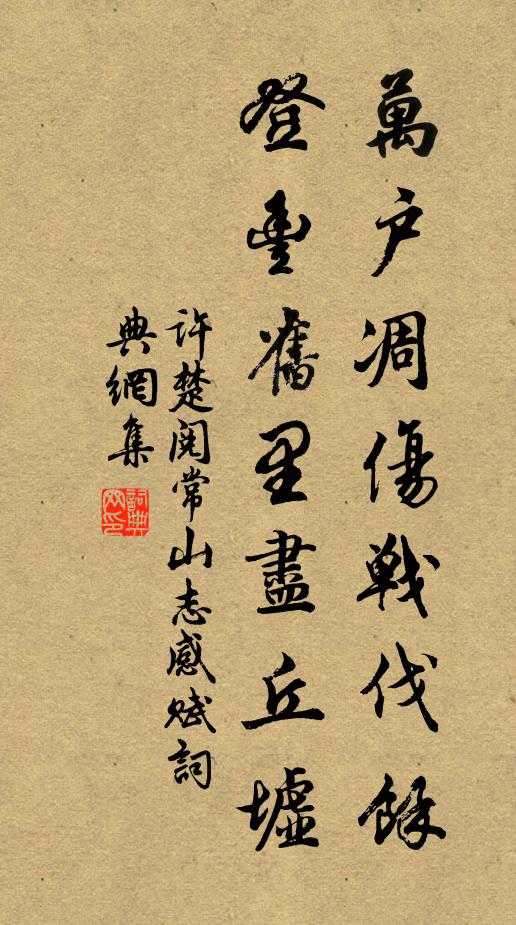 萬戶凋傷戰伐餘
登豐舊里盡丘墟
許楚閱常山志感賦詞
典網集
詞典
网印